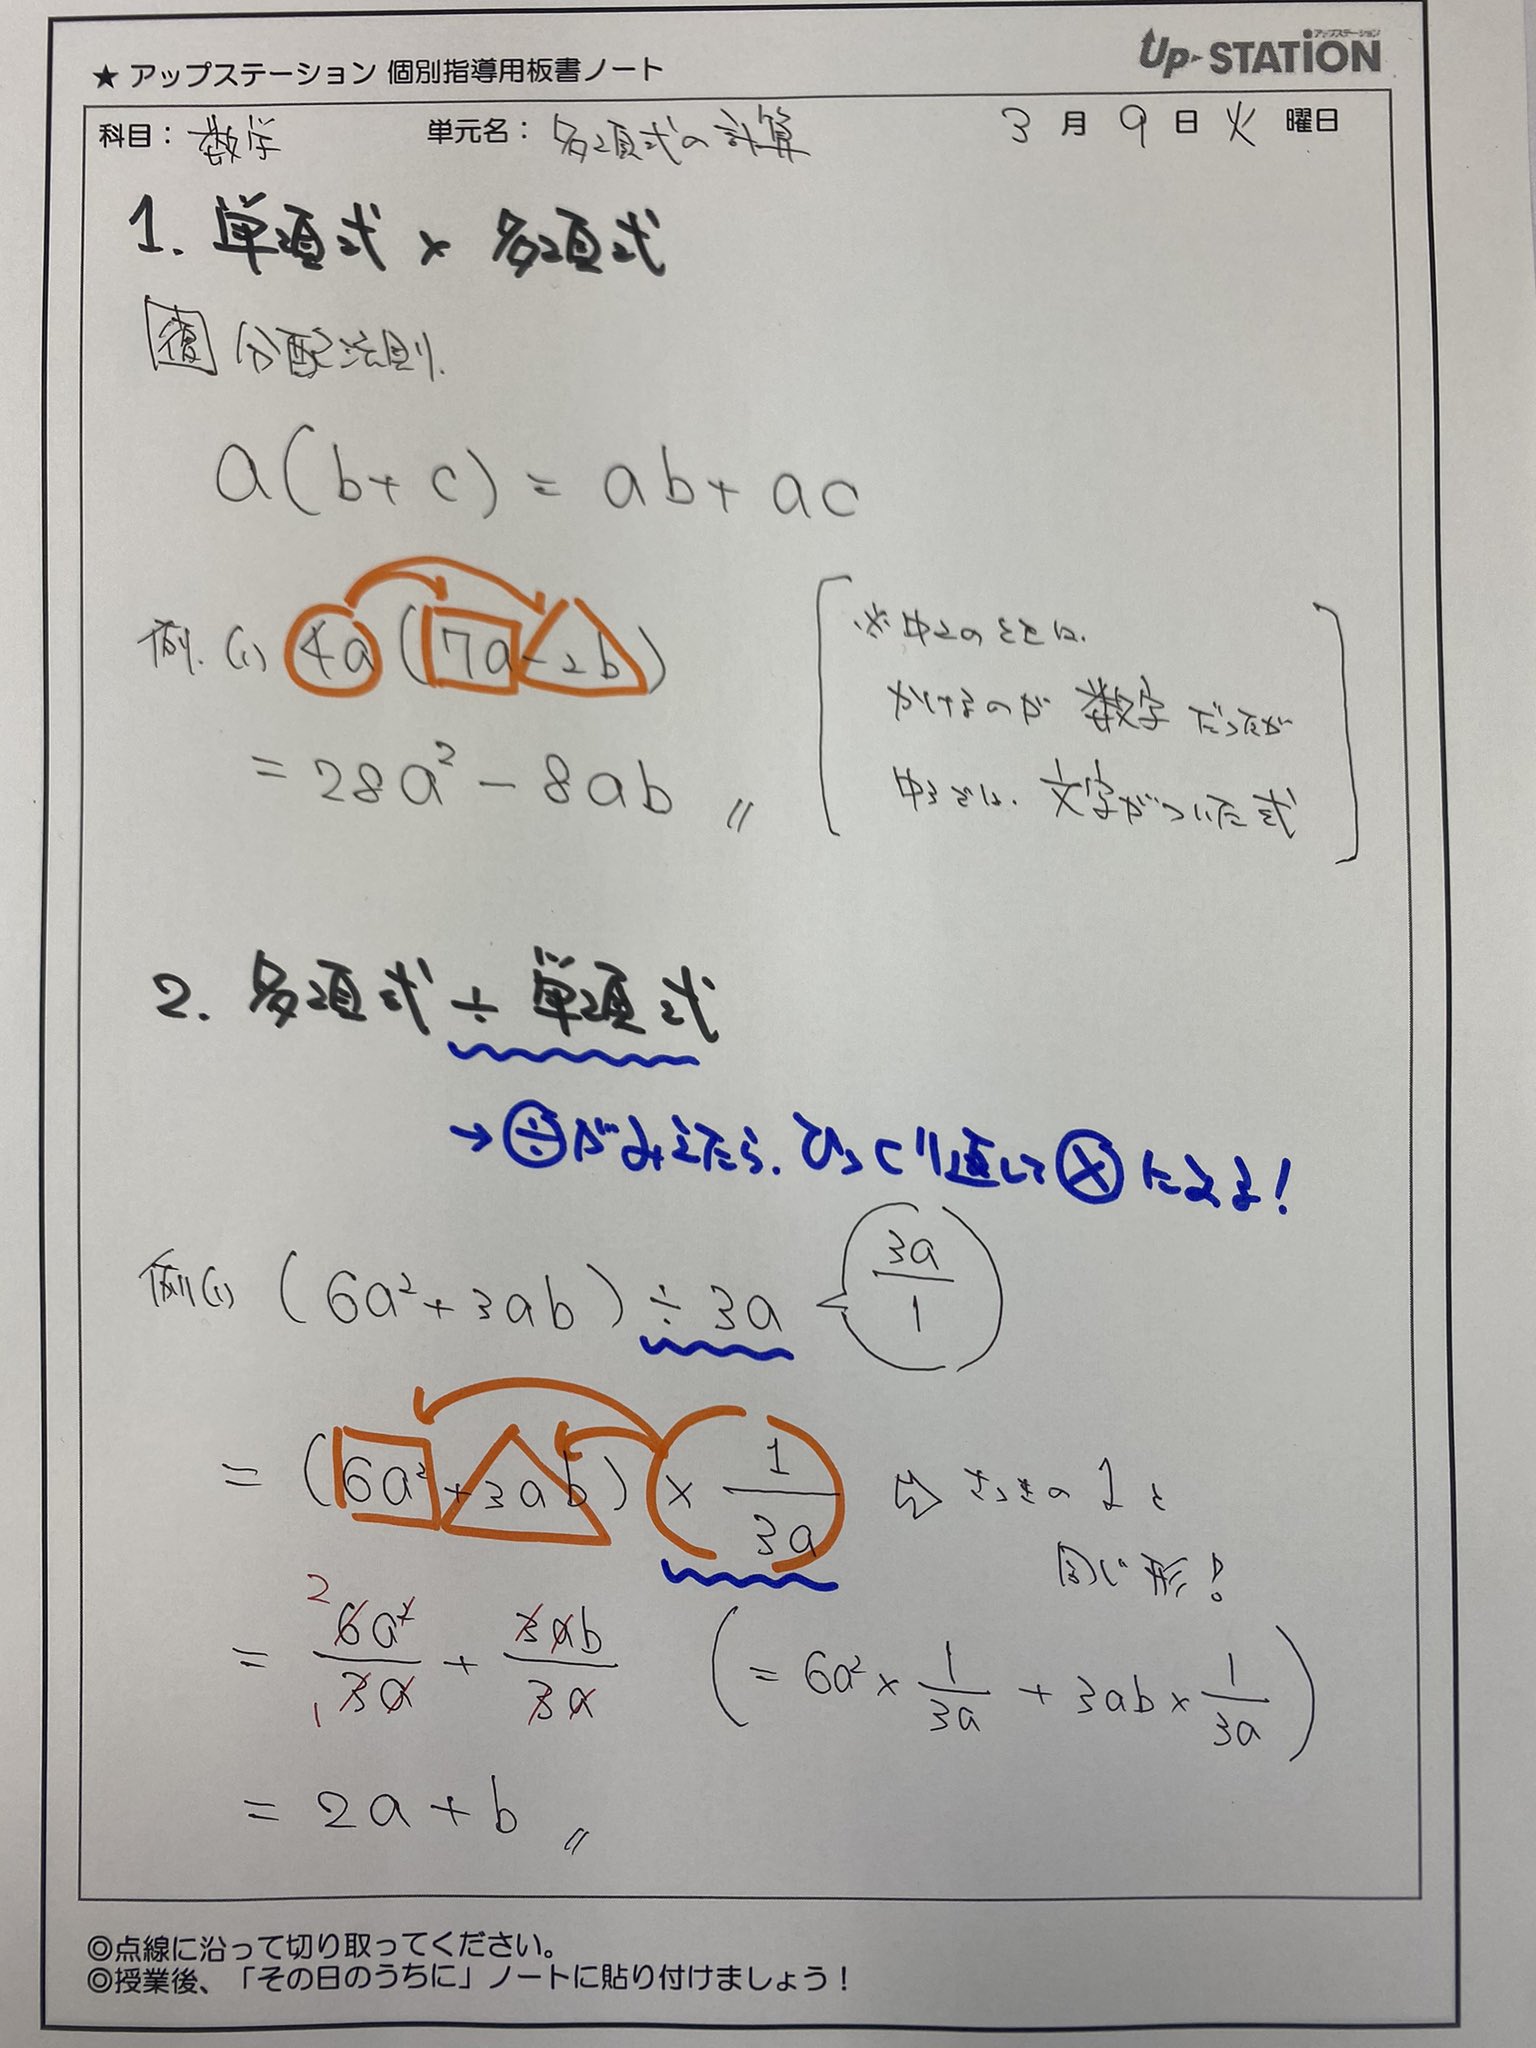 ★ アップステーション 個別指導用板書ノート
アップステーション
Up-STATION
科目： 数学 単元名： 多項式の計算 3 月 9 日 火 曜日
1. 単項式 × 多項式
復 分配法則.
a(b+c) = ab + ac
例. (1) 4a (7a-2b)
= 28a² - 8ab 〃
※中2のときは.
かけるのが 数字 だったが
中3では. 文字がついた式
2. 多項式 ÷ 単項式
→ ÷がみえたら. ひっくり返して × にする!
例(1) (6a²+3ab) ÷ 3a 3a/1
= (6a²+3ab) × 1/3a ⇨ さっきの 1 と
同じ形!
= 6a²/3a + 3ab/3a (= 6a² × 1/3a + 3ab × 1/3a)
2
1
= 2a + b 〃
◎点線に沿って切り取ってください。
◎授業後、「その日のうちに」ノートに貼り付けましょう！